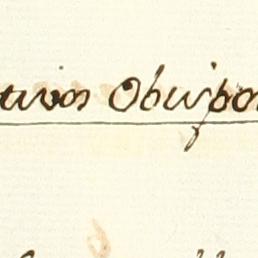 tivos Obispos